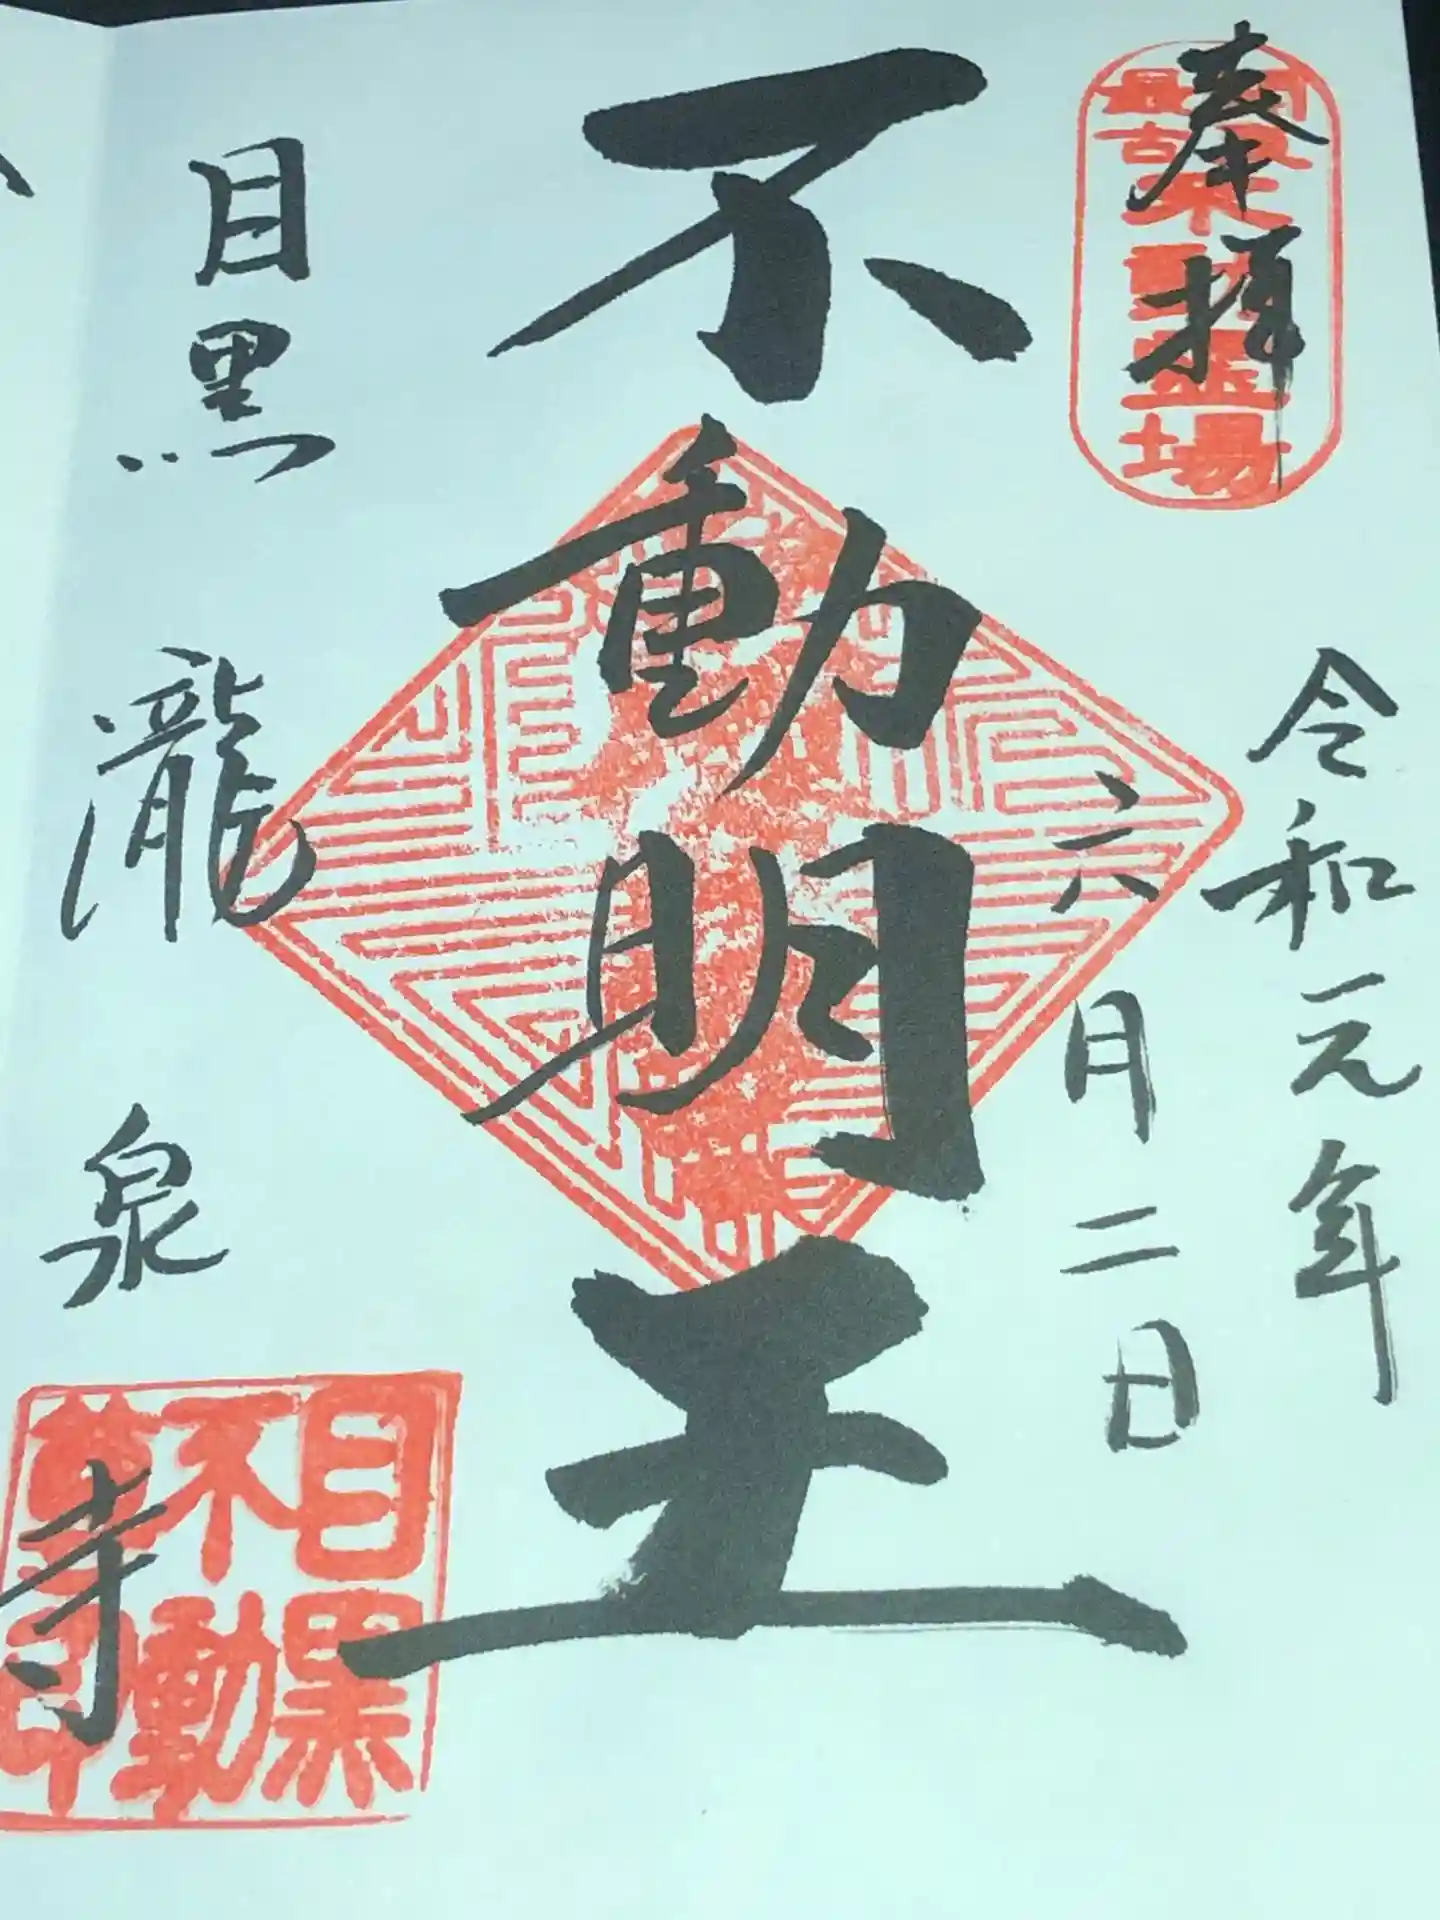 奉拝
関東最古不動霊場
令和元年
六月二日
不動明王
目黒 瀧泉寺
目黒
不動